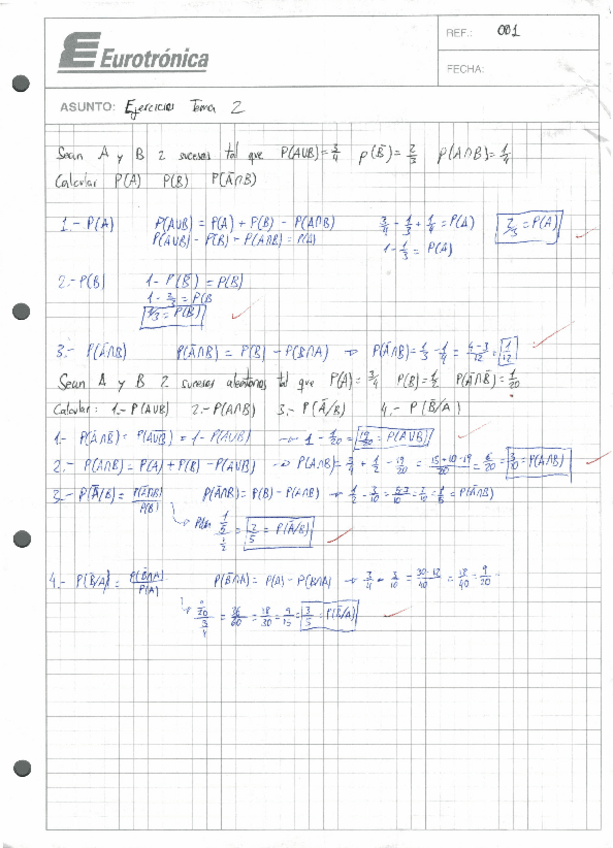 Eurotrónica
REF.: 001
FECHA:
ASUNTO: Ejercicios Tema 2
Sean A y B 2 sucesos tal que P(A∪B)=3/4 p(B̄)=2/3 p(A∩B)=1/4
Calcular P(A) P(B) P(Ā∩B)
1.- P(A) P(A∪B) = P(A) + P(B) - P(A∩B) 3/4 - 1/3 + 1/4 = P(A) 2/3 = P(A)
P(A∪B) - P(B) + P(A∩B) = P(A) 1 - 1/3 = P(A)
2.- P(B) 1 - P(B̄) = P(B)
1 - 2/3 = P(B
1/3 = P(B)
3.- P(Ā∩B) P(Ā∩B) = P(B) - P(B∩A) → P(Ā∩B) = 1/3 - 1/4 = 4-3/12 = 1/12
Sean A y B 2 sucesos aleatorios tal que P(A)=3/4 P(B)=1/2 P(Ā∩B̄)=1/20
Calcular: 1.- P(A∪B) 2.- P(A∩B) 3.- P(Ā/B) 4.- P(B̄/A)
1.- P(Ā∩B̄) = P(A∪B) = 1 - P(A∪B) → 1 - 1/20 = 19/20 = P(A∪B)
2.- P(A∩B) = P(A) + P(B) - P(A∪B) → P(A∩B) = 3/4 + 1/2 - 19/20 = 15+10-19/20 = 6/20 = 3/10 = P(A∩B)
3.- P(Ā/B) = P(Ā∩B)/P(B) P(Ā∩B) = P(B) - P(A∩B) → 1/2 - 3/10 = 5-3/10 = 2/10 = 1/5 = P(Ā∩B)
1/5 / 1/2 = 2/5 = P(Ā/B)
4.- P(B̄/A) = P(B̄∩A)/P(A) P(B̄∩A) = P(A) - P(B∩A) → 3/4 - 3/10 = 30-12/40 = 18/40 = 9/20
9/20 / 3/4 = 36/60 = 18/30 = 9/15 = 3/5 = P(B̄/A)